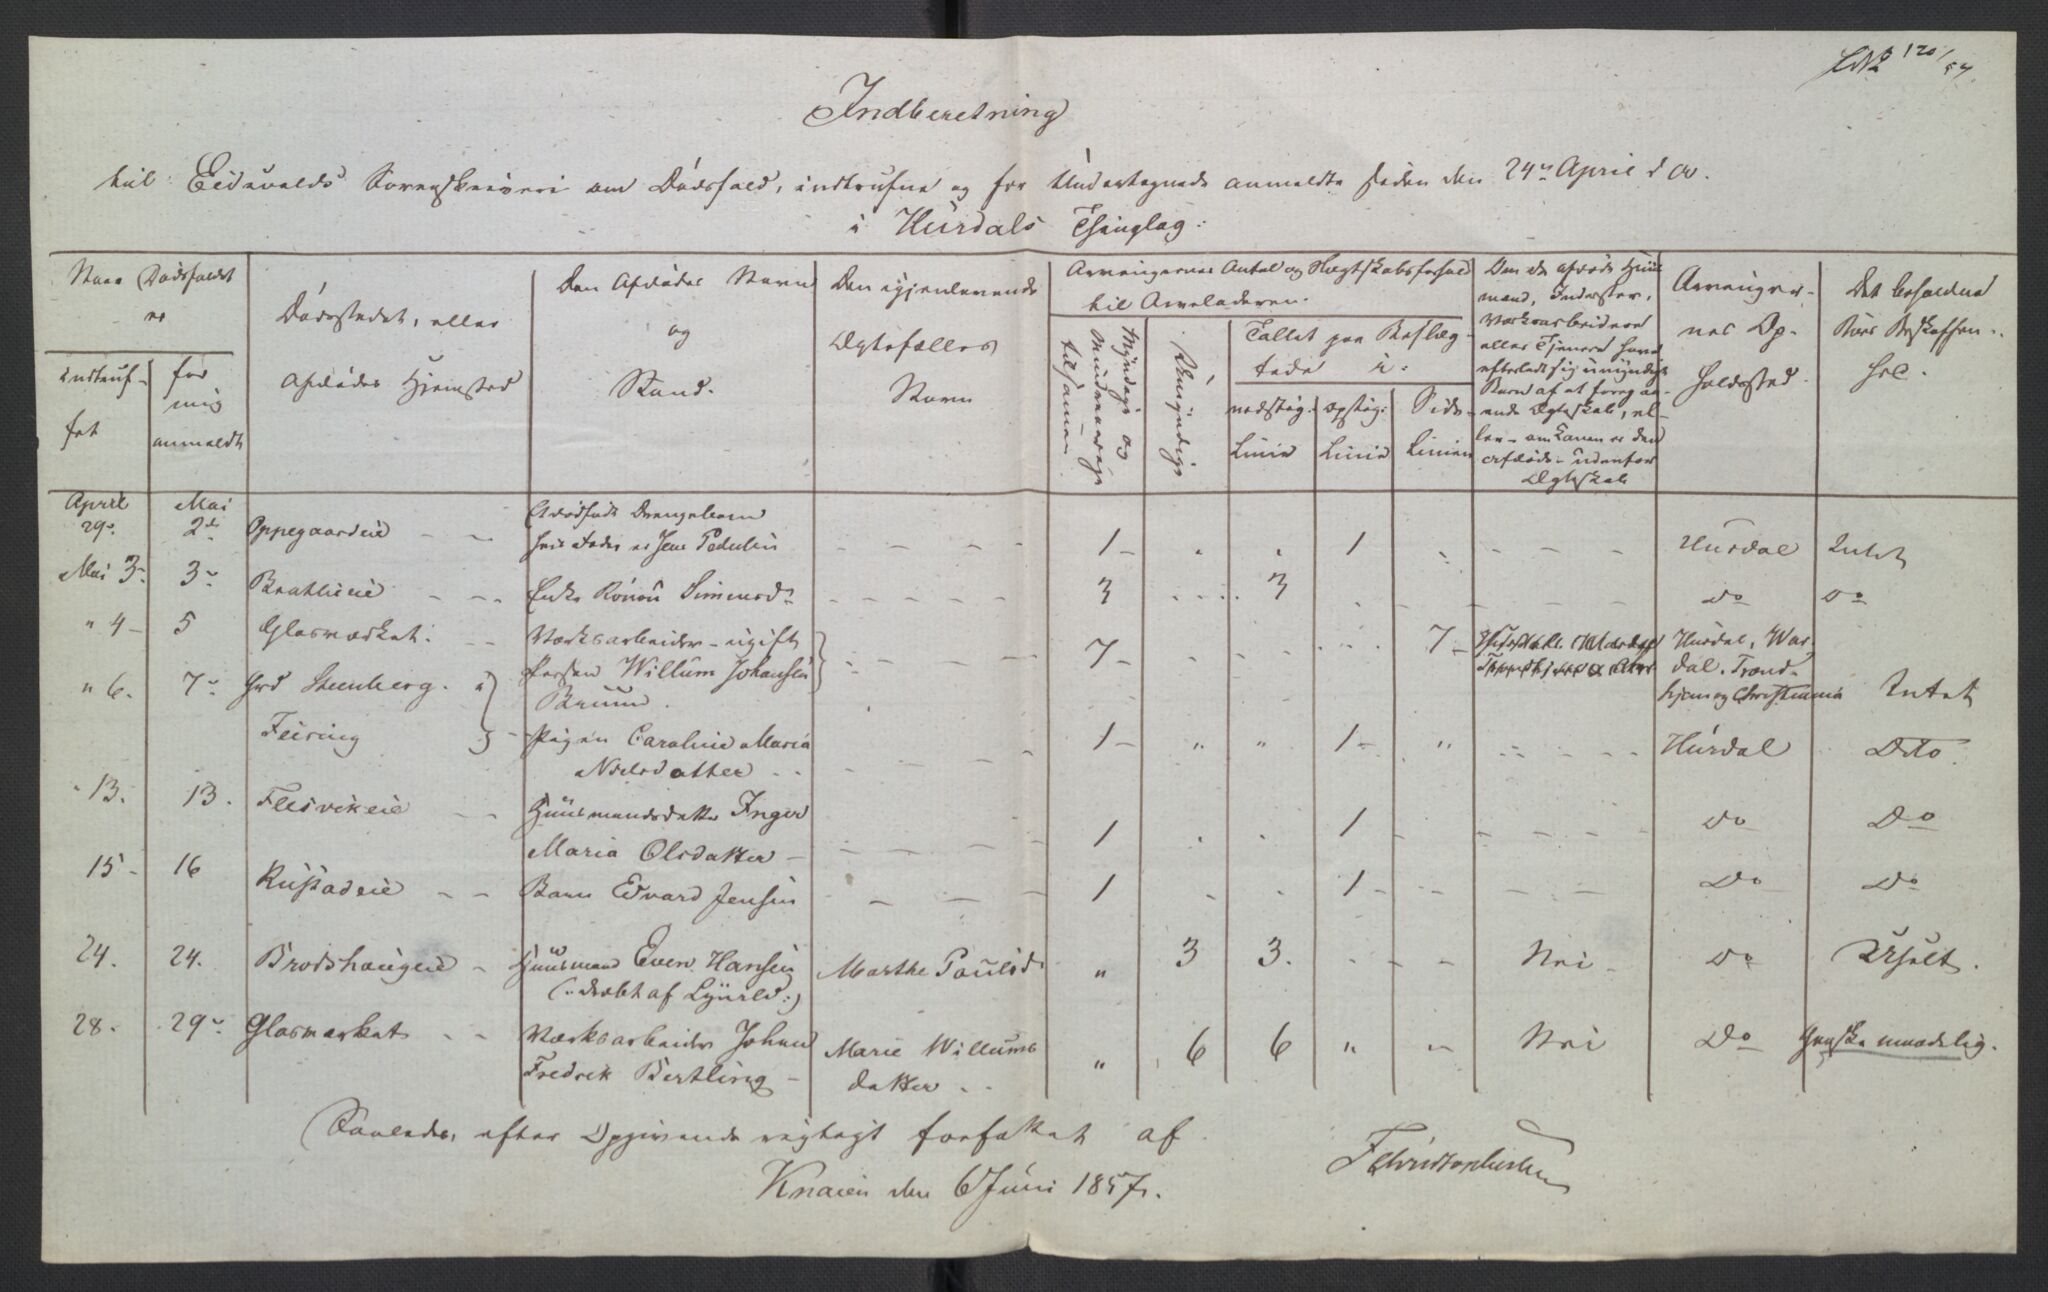 120/57.
Indberetning
til Eidsvolds Sorenskriveri om Dødsfald, indtrufne og for Undertegnede anmeldte siden den 24de April d A.
i Hurdals Thinglag:
Naar Dødsfaldet
er
indtruf-
fet
for
mig
anmeldt
Dødsstedet, eller
Afdødes Hjemsted
Den Afdødes Navn
og
Stand.
Den igjenlevende
Ægtefælles
Navn
Arvingernes Antal og Slægtskabsforhold
til Arveladeren.
Myndige og
Mindreaarige
tilsammen
Umyndige
Tallet paa Beslæg-
tede i:
nedstig.
Linie
opstig:
Linie
Side-
Linien
Om de afdøde Huus-
mænd, Inderster,
Værksarbeidere
eller Tjenere have
efterladt sig umyndige
Børn af et foregaa-
ende Ægteskab, el-
ler om Konen er den
afdøde udenfor
Ægteskab
Arvinger-
nes Op-
holdssted.
Det beholdne
Boes Beskaffen-
hed.
April Mai
29de 2den Oppegaardeie - - Dødfødt Drengebarn
hvis Fader er Jens Pedersen - - - - 1 - . . 1 . - - - Hurdal Intet
Mai 3de 3de Bratlieeie - - - Enke Rønou Simensd. - - - - - 3 . . . 3 . - - - Do Do
" 4 - 5 Glasværket. - - Værksarbeider - ugift
Person Willum Johansen
Bruun. - - - - 7 - - - . . 7 - Hurdal, Wær-
dal, Trond-
hjem og Christiania Intet
" 6. 7de Grd Steenberg. i
Feiring - Pigen Caroline Maria
Nielsdatter - - - - - 1 - " " 1 - " - - - Hurdal Dito.
" 13. 13. Fleisvikeie - - Huusmandsdatter Inger
Maria Olsdatter - - - - - - 1 . . 1 - - - - Do Do
15 - 16 Rustadeie - - Barn Edvard Jensen - - - 1 . . 1 - - - - - Do Do
24. 24. Brodshaugeie - Huusmand Even Hansen
(: dræbt af Lynild :) Marthe Poulsd. " 3 3. . - - Nei - Do Uselt.
28. 29de Glasværket - - Værksarbeider Johan
Fredrik Bertling - Marie Willums
datter - - " 6 6 " - Nei Do Ganske maadelig.
Saaledes, efter Opgivende rigtigt forfattet af
Knaien den 6 Juni 1857.